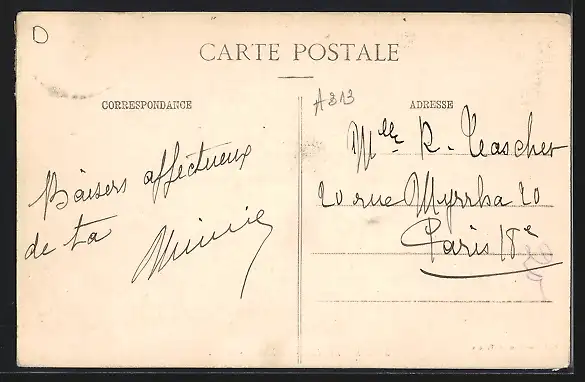 D
CARTE POSTALE
CORRESPONDANCE
A 813
ADRESSE
Baisers affectueux
de ta
Minnie
Mlle R. Teascher
20 rue Myrrha 20
Paris 18e